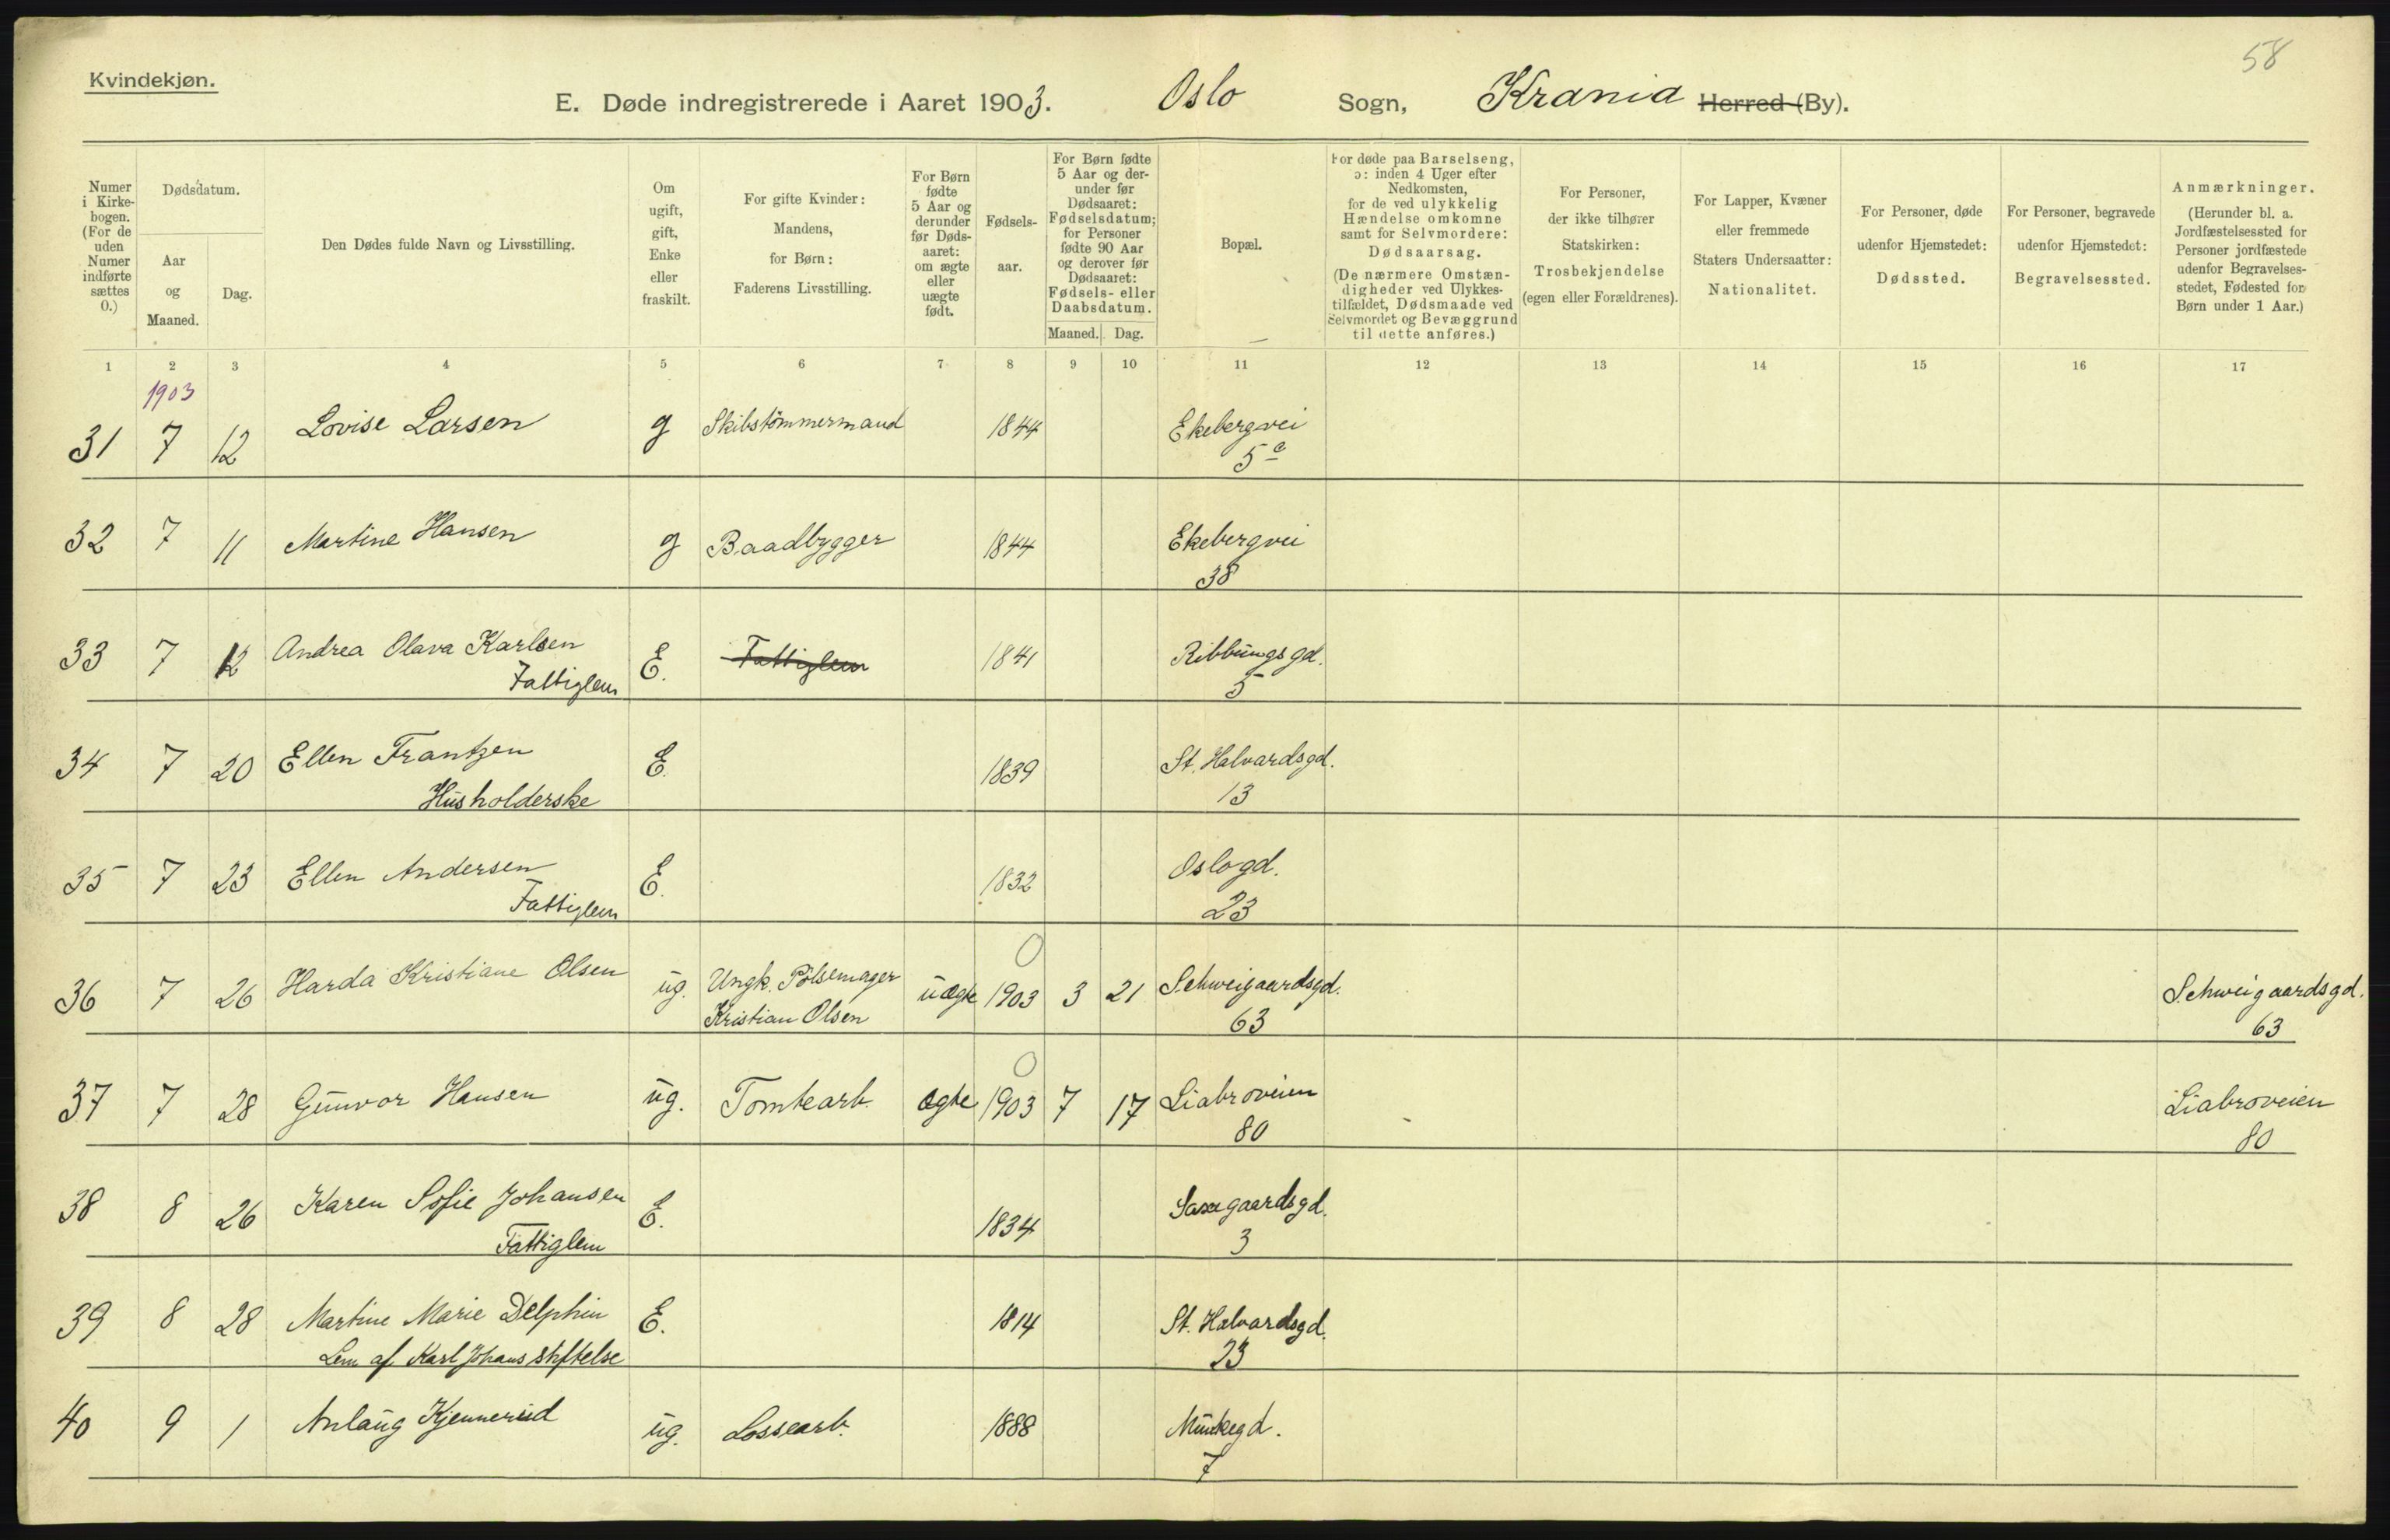 58
Kvindekjøn.
E. Døde indregistrerede i Aaret 1903. Oslo Sogn, Krania Herred (By).
Numer i Kirkebogen. (For de uden Numer indførte sættes 0.)
Dødsdatum.
Aar og Maaned.
Dag.
Den Dødes fulde Navn og Livsstilling.
Om ugift, gift, Enke eller fraskilt.
For gifte Kvinder: Mandens, for Børn: Faderens Livsstilling.
For Børn fødte 5 Aar og derunder før Dødsaaret: om ægte eller uægte født.
Fødselsaar.
For Børn fødte 5 Aar og derunder før Dødsaaret: Fødselsdatum; for Personer fødte 90 Aar og derover før Dødsaaret: Fødsels- eller Daabsdatum.
Maaned. Dag.
Bopæl.
For døde paa Barselseng, ɔ: inden 4 Uger efter Nedkomsten, for de ved ulykkelig Hændelse omkomne samt for Selvmordere: Dødsaarsag. (De nærmere Omstændigheder ved Ulykkestilfældet, Dødsmaade ved Selvmordet og Bevæggrund til dette anføres.)
For Personer, der ikke tilhører Statskirken: Trosbekjendelse (egen eller Forældrenes).
For Lapper, Kvæner eller fremmede Staters Undersaatter: Nationalitet.
For Personer, døde udenfor Hjemstedet: Dødssted.
For Personer, begravede udenfor Hjemstedet: Begravelsessted.
Anmærkninger. (Herunder bl. a. Jordfæstelsessted for Personer jordfæstede udenfor Begravelsesstedet, Fødested for Børn under 1 Aar.)
1 2 3 4 5 6 7 8 9 10 11 12 13 14 15 16 17
1903
31 7 12 Lovise Larsen g Skibstömmermand 1844 Ekebergvei
5c
32 7 11 Martine Hansen g Baadbygger 1844 Ekebergvei
38
33 7 12 Andrea Olava Karlsen E. Fattiglem 1841 Ribbungsgd.
Fattiglem 5
34 7 20 Ellen Frantzen E. 1839 St. Halvardsgd.
Husholderske 13
35 7 23 Ellen Andersen E. 1832 Oslogd.
Fattiglem 23
0
36 7 26 Harda Kristiane Olsen ug. Ungk. Pölsemager uægte 1903 3 21 Schweigaardsgd. Schweigaardsgd.
Kristian Olsen 63 63
0
37 7 28 Gunvor Hansen ug. Tomtearb. ægte 1903 7 17 Liabroveien Liabroveien
80 80
38 8 26 Karen Sofie Johansen E. 1834 Saxegaardsgd.
Fattiglem 3
39 8 28 Martine Marie Delphin E. 1814 St. Halvardsgd.
Lem af Karl Johans stiftelse 23
40 9 1 Anlaug Kjennerud ug. Lossearb. 1888 Munkegd.
7